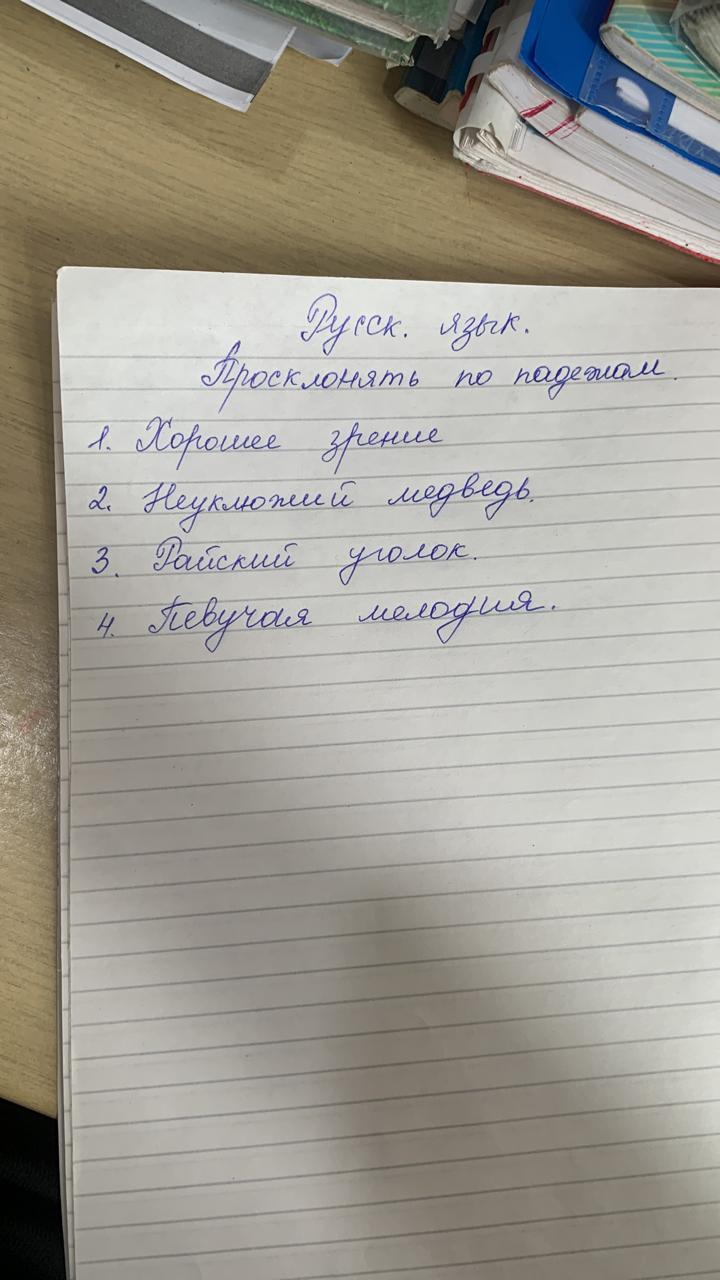 Русск. язык.
Просклонять по падежам.
1. Хорошее зрение
2. Неуклюжий медведь.
3. Райский уголок.
4. Певучая мелодия.